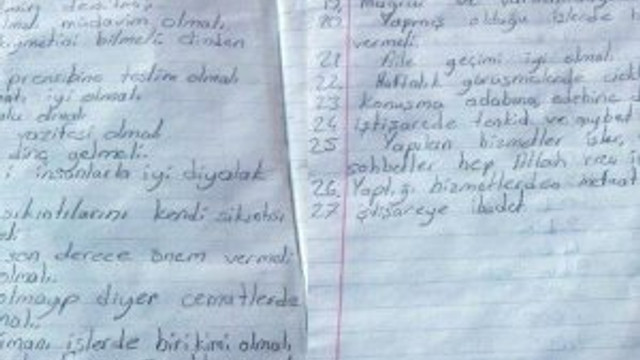 müdavim olmalı
kıymetini bilmeli dinden
prensibine teslim olmalı
iyi olmalı
olmalı
vazifesi olmalı
dinç gelmeli.
insanlarla iyi diyalak
sıkıntılarını kendi sıkıntısı
son derece önem vermeli
olmalı.
olmayıp diyer cematlerde
işlerde birikimi olmalı
19.
20 Yapmış olduğu işlerde
vermeli.
21 Aile geçimi iyi olmalı
22 Haftalık görüşmelerde
23 konuşma adabına edebine
24 iştişarede tenkid ve gıybet
25 Yapılan hizmetler işler,
sohbetler hep Allah rıza
26. Yaptığı hizmetlerden
27 iştişareye